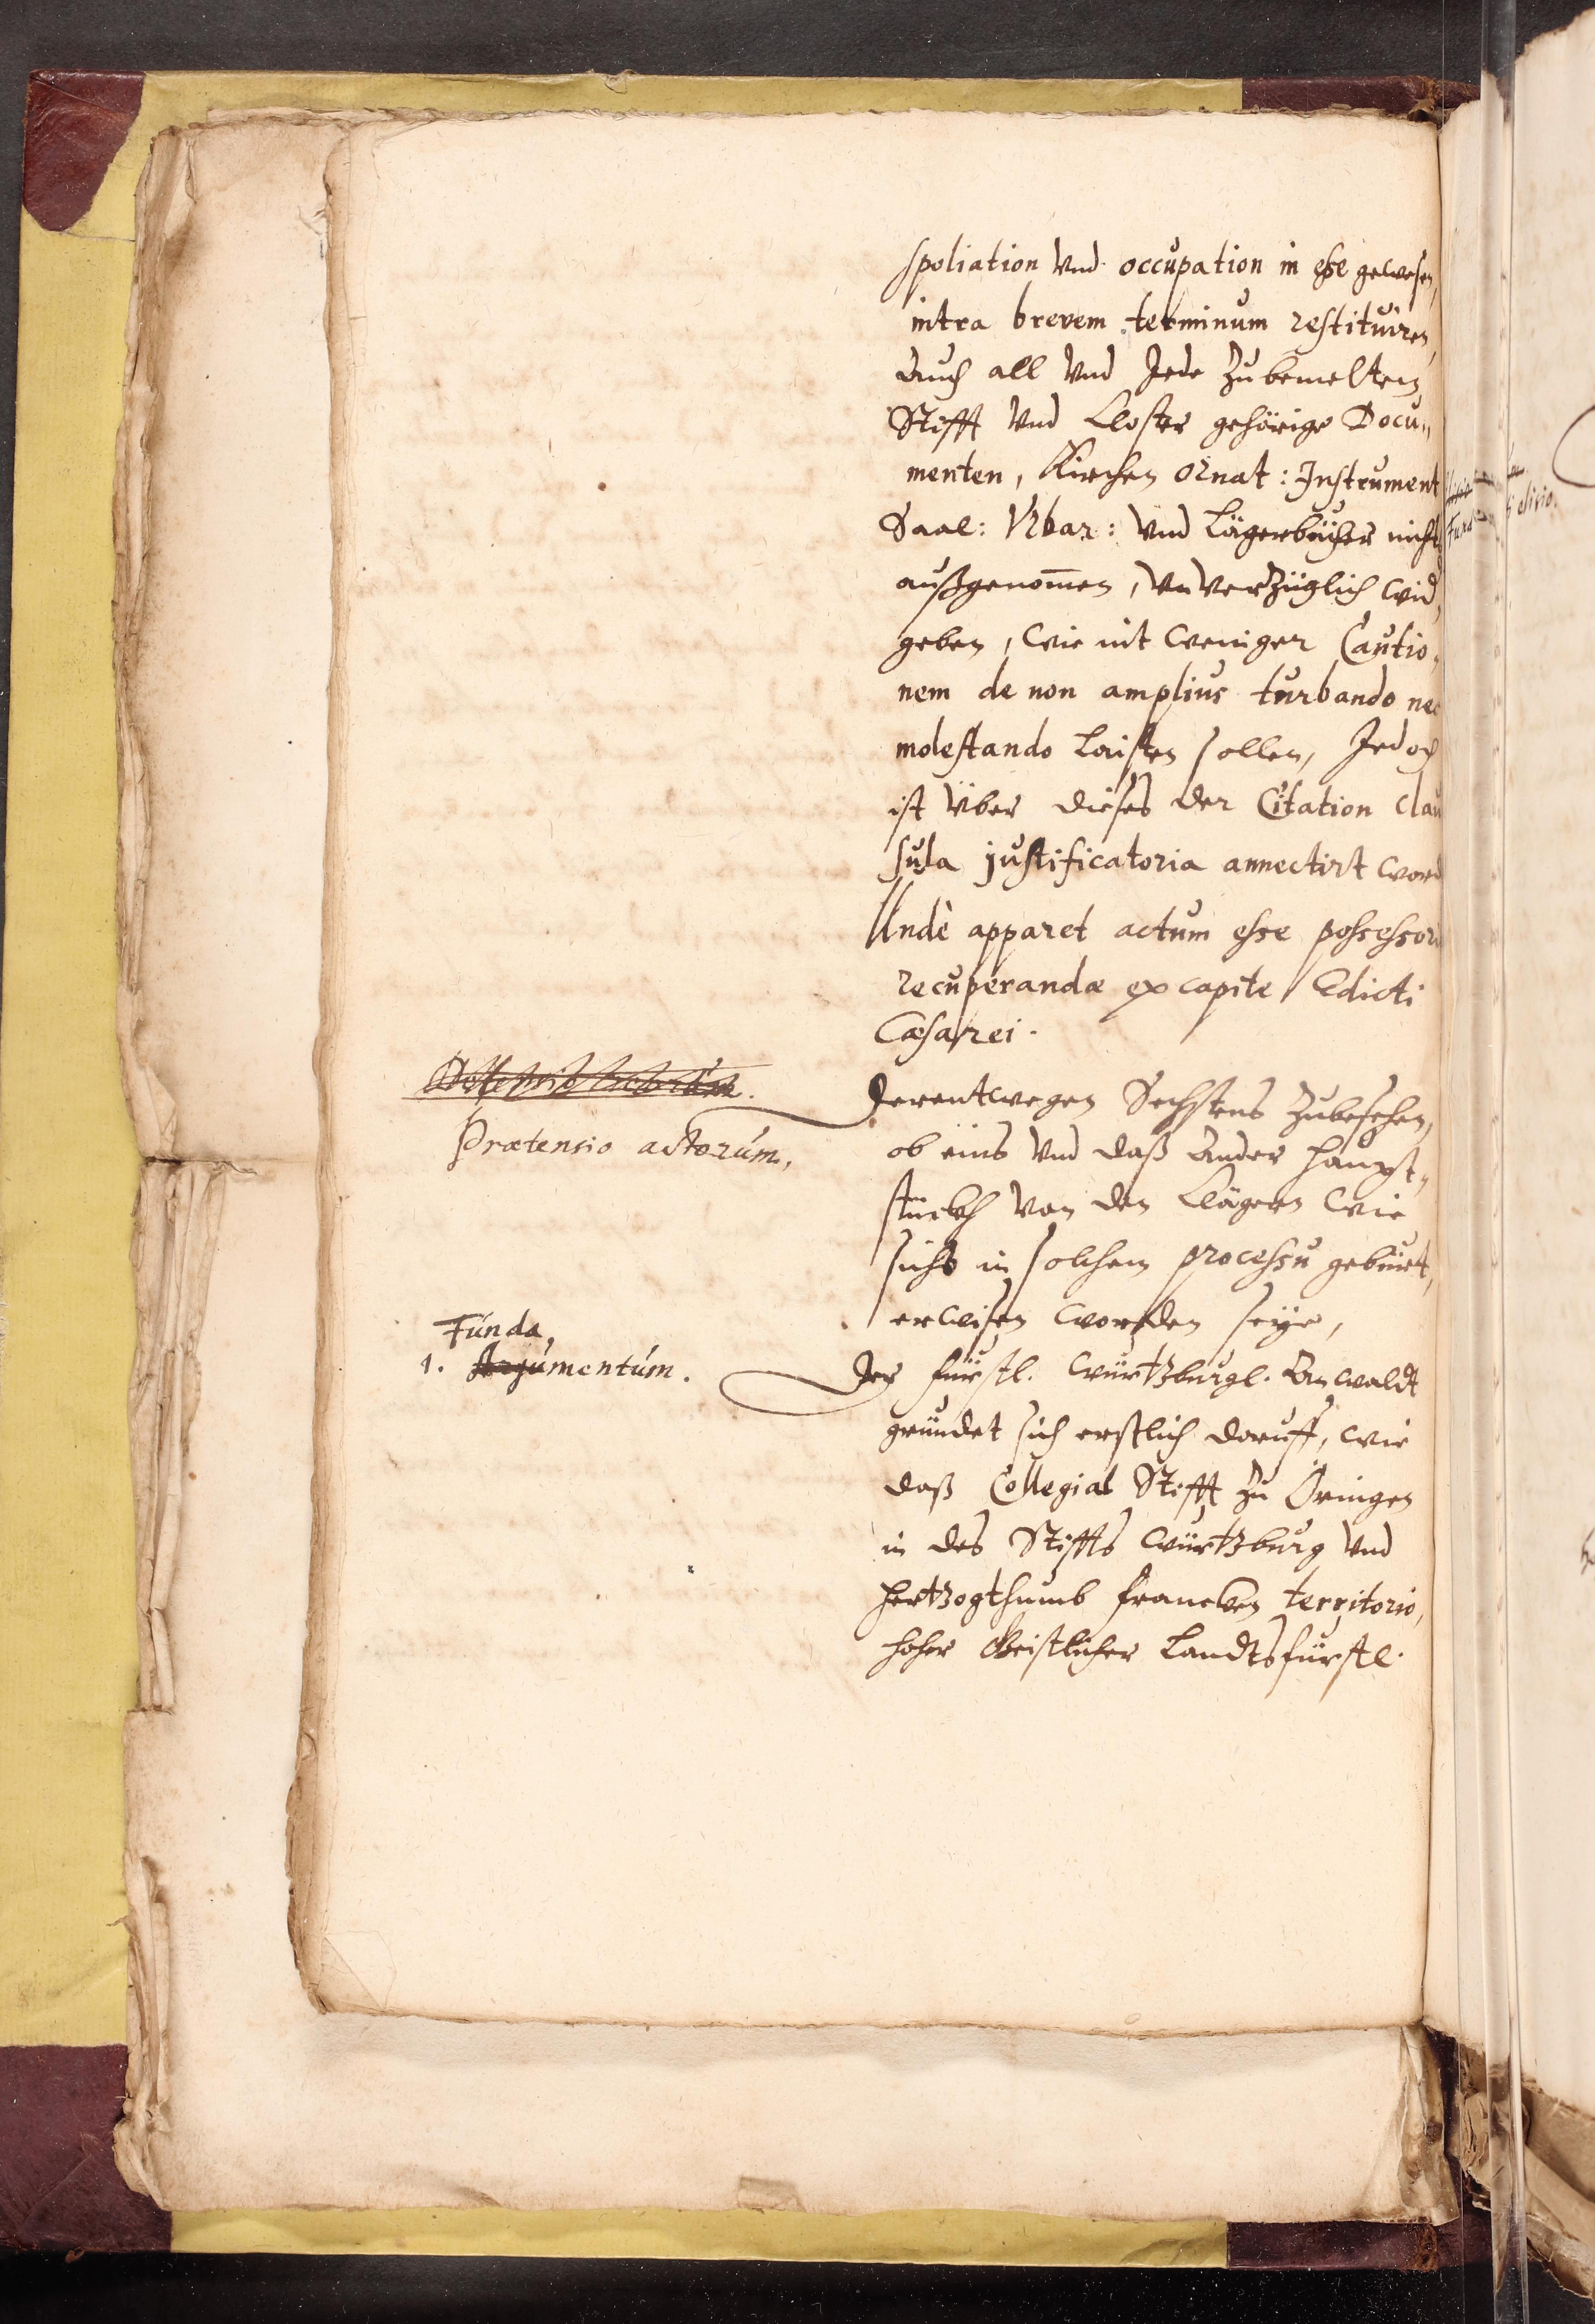 spoliation vnd occupation in esse gewesen,
intra brevem terminum restituiren,
auch all vnd Jede zu bemelten
Stifft vnd Closter gehörige Docu„
menten, Kirchen ornat: Instrument
Saal: Vrbar: vnd Lägerbücher nichts
außgenom̅en, vnverzüglich wid
geben, wie nit weniger Cautio„
nem de non amplius turbando nec
molestando laisten sollen, Jedoch
ist über dieses der Citation Clau
sula justificatoria annectirt word
Undè apparet actum esse possessori
recuperandæ ex capite Edicti
Cæsarei.
Prætensio actorum,
Derentwegen Sechstens zubesehen,
ob eins vnd daß ander haupt„
stückh von den Clägern wie
sichs in solchem processu gebürt,
erwisen worden seye,
Funda,
1. Argumentum.
Der fürstl. würtzburgl. Anwaldt
gründet sich erstlich doruff, wie
daß Collegial Stifft zu Öringen
in des Stiffts würtzburg vnd
hertzogthumb francken territorio,
hoher Geistlicher Landtsfürstl.